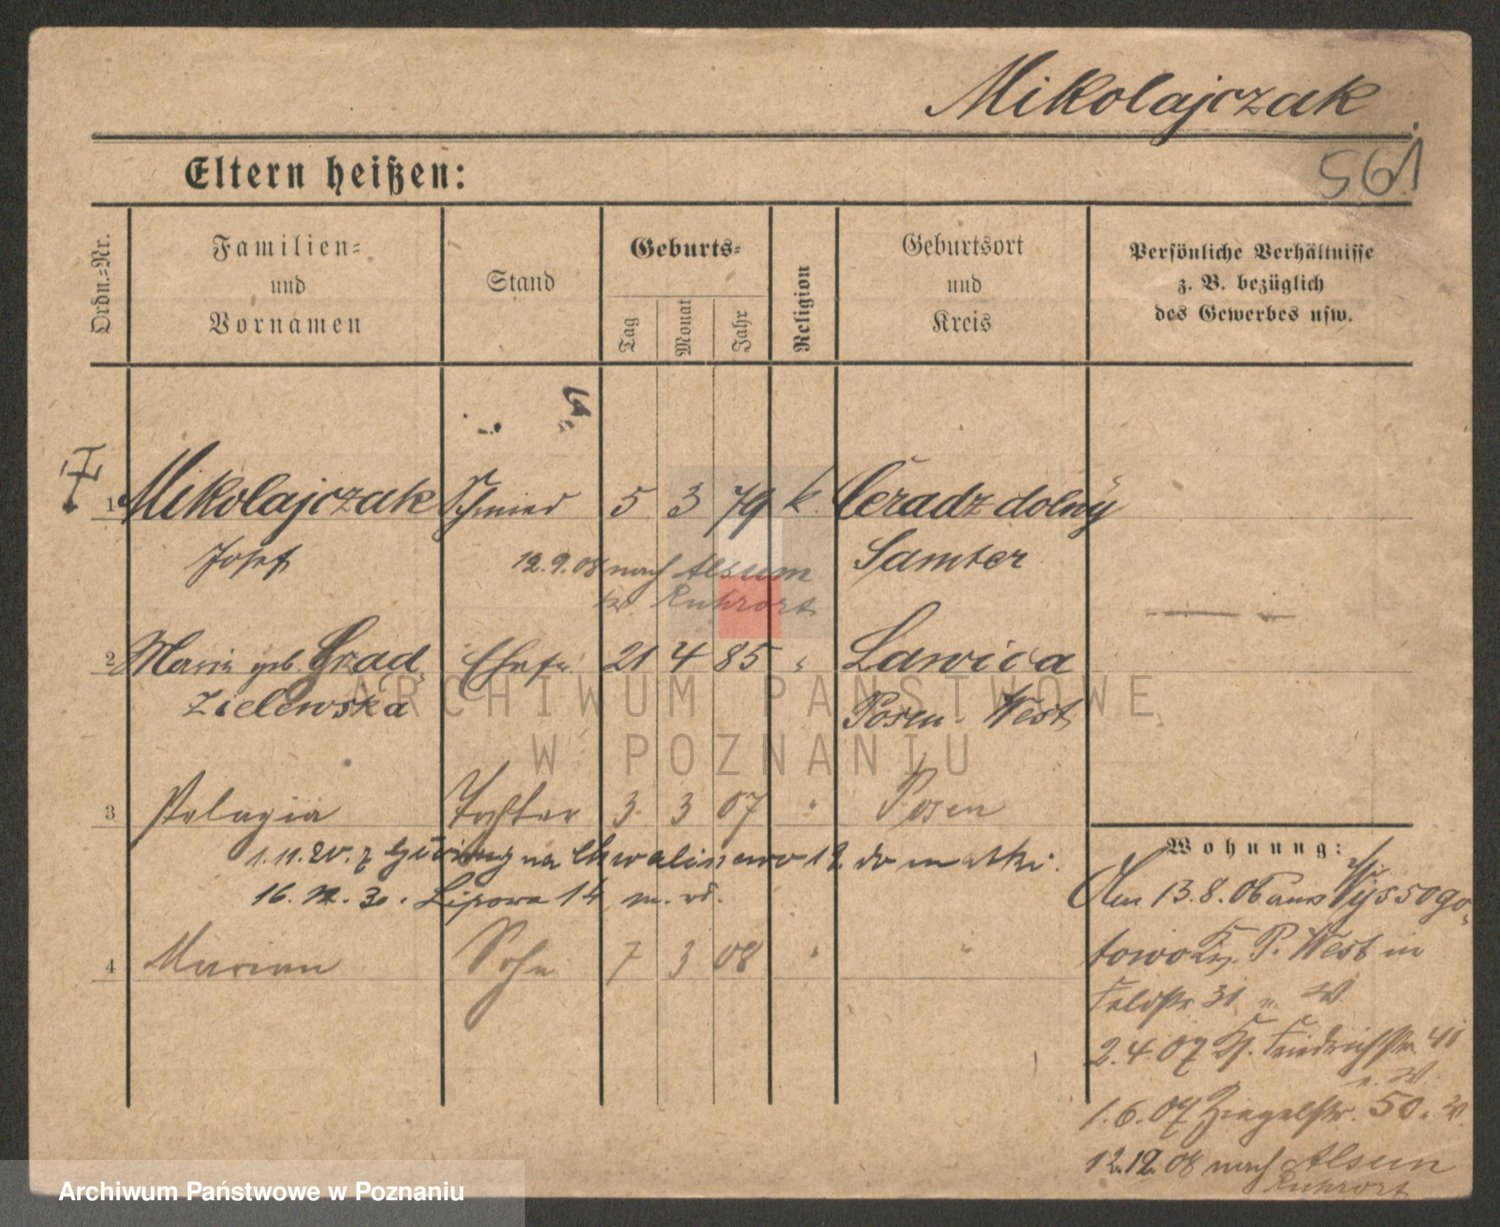 Mikolajczak
561
Eltern heißen:
Ordn.-Nr.
Familien-
und
Vornamen
Stand
Geburts-
Tag
Monat
Jahr
Religion
Geburtsort
und
Kreis
Persönliche Verhältnisse
z. B. bezüglich
des Gewerbes usw.
1 Mikolajczak Schmied 5 3 79 k. Ceradz dolny
Josef 12.9.08 nach Alsum Samter
Kr. Ruhrort
2 Maria geb. Grąd- Ehefr. 21 4 85 " Lawica
zielewska Posen-West
ARCHIWUM PAŃSTWOWE
W POZNANIU
3 Pelagia Tochter 3 3 07 " Posen
1.11.20. z na Chwaliszewo 12 do matki.
16. 30. Lipowa 14 m.
4 Marian Sohn 7 3 08 " "
Wohnung:
Am 13.8.06 aus Wyssogo-
towo Krs. P. West in
Feldstr 31 n. W
2.4.07 Friedrichstr. 41
n. W.
1.6.07 Ziegelstr. 50. W.
12.12.08 nach Alsum
Ruhrort
Archiwum Państwowe w Poznaniu